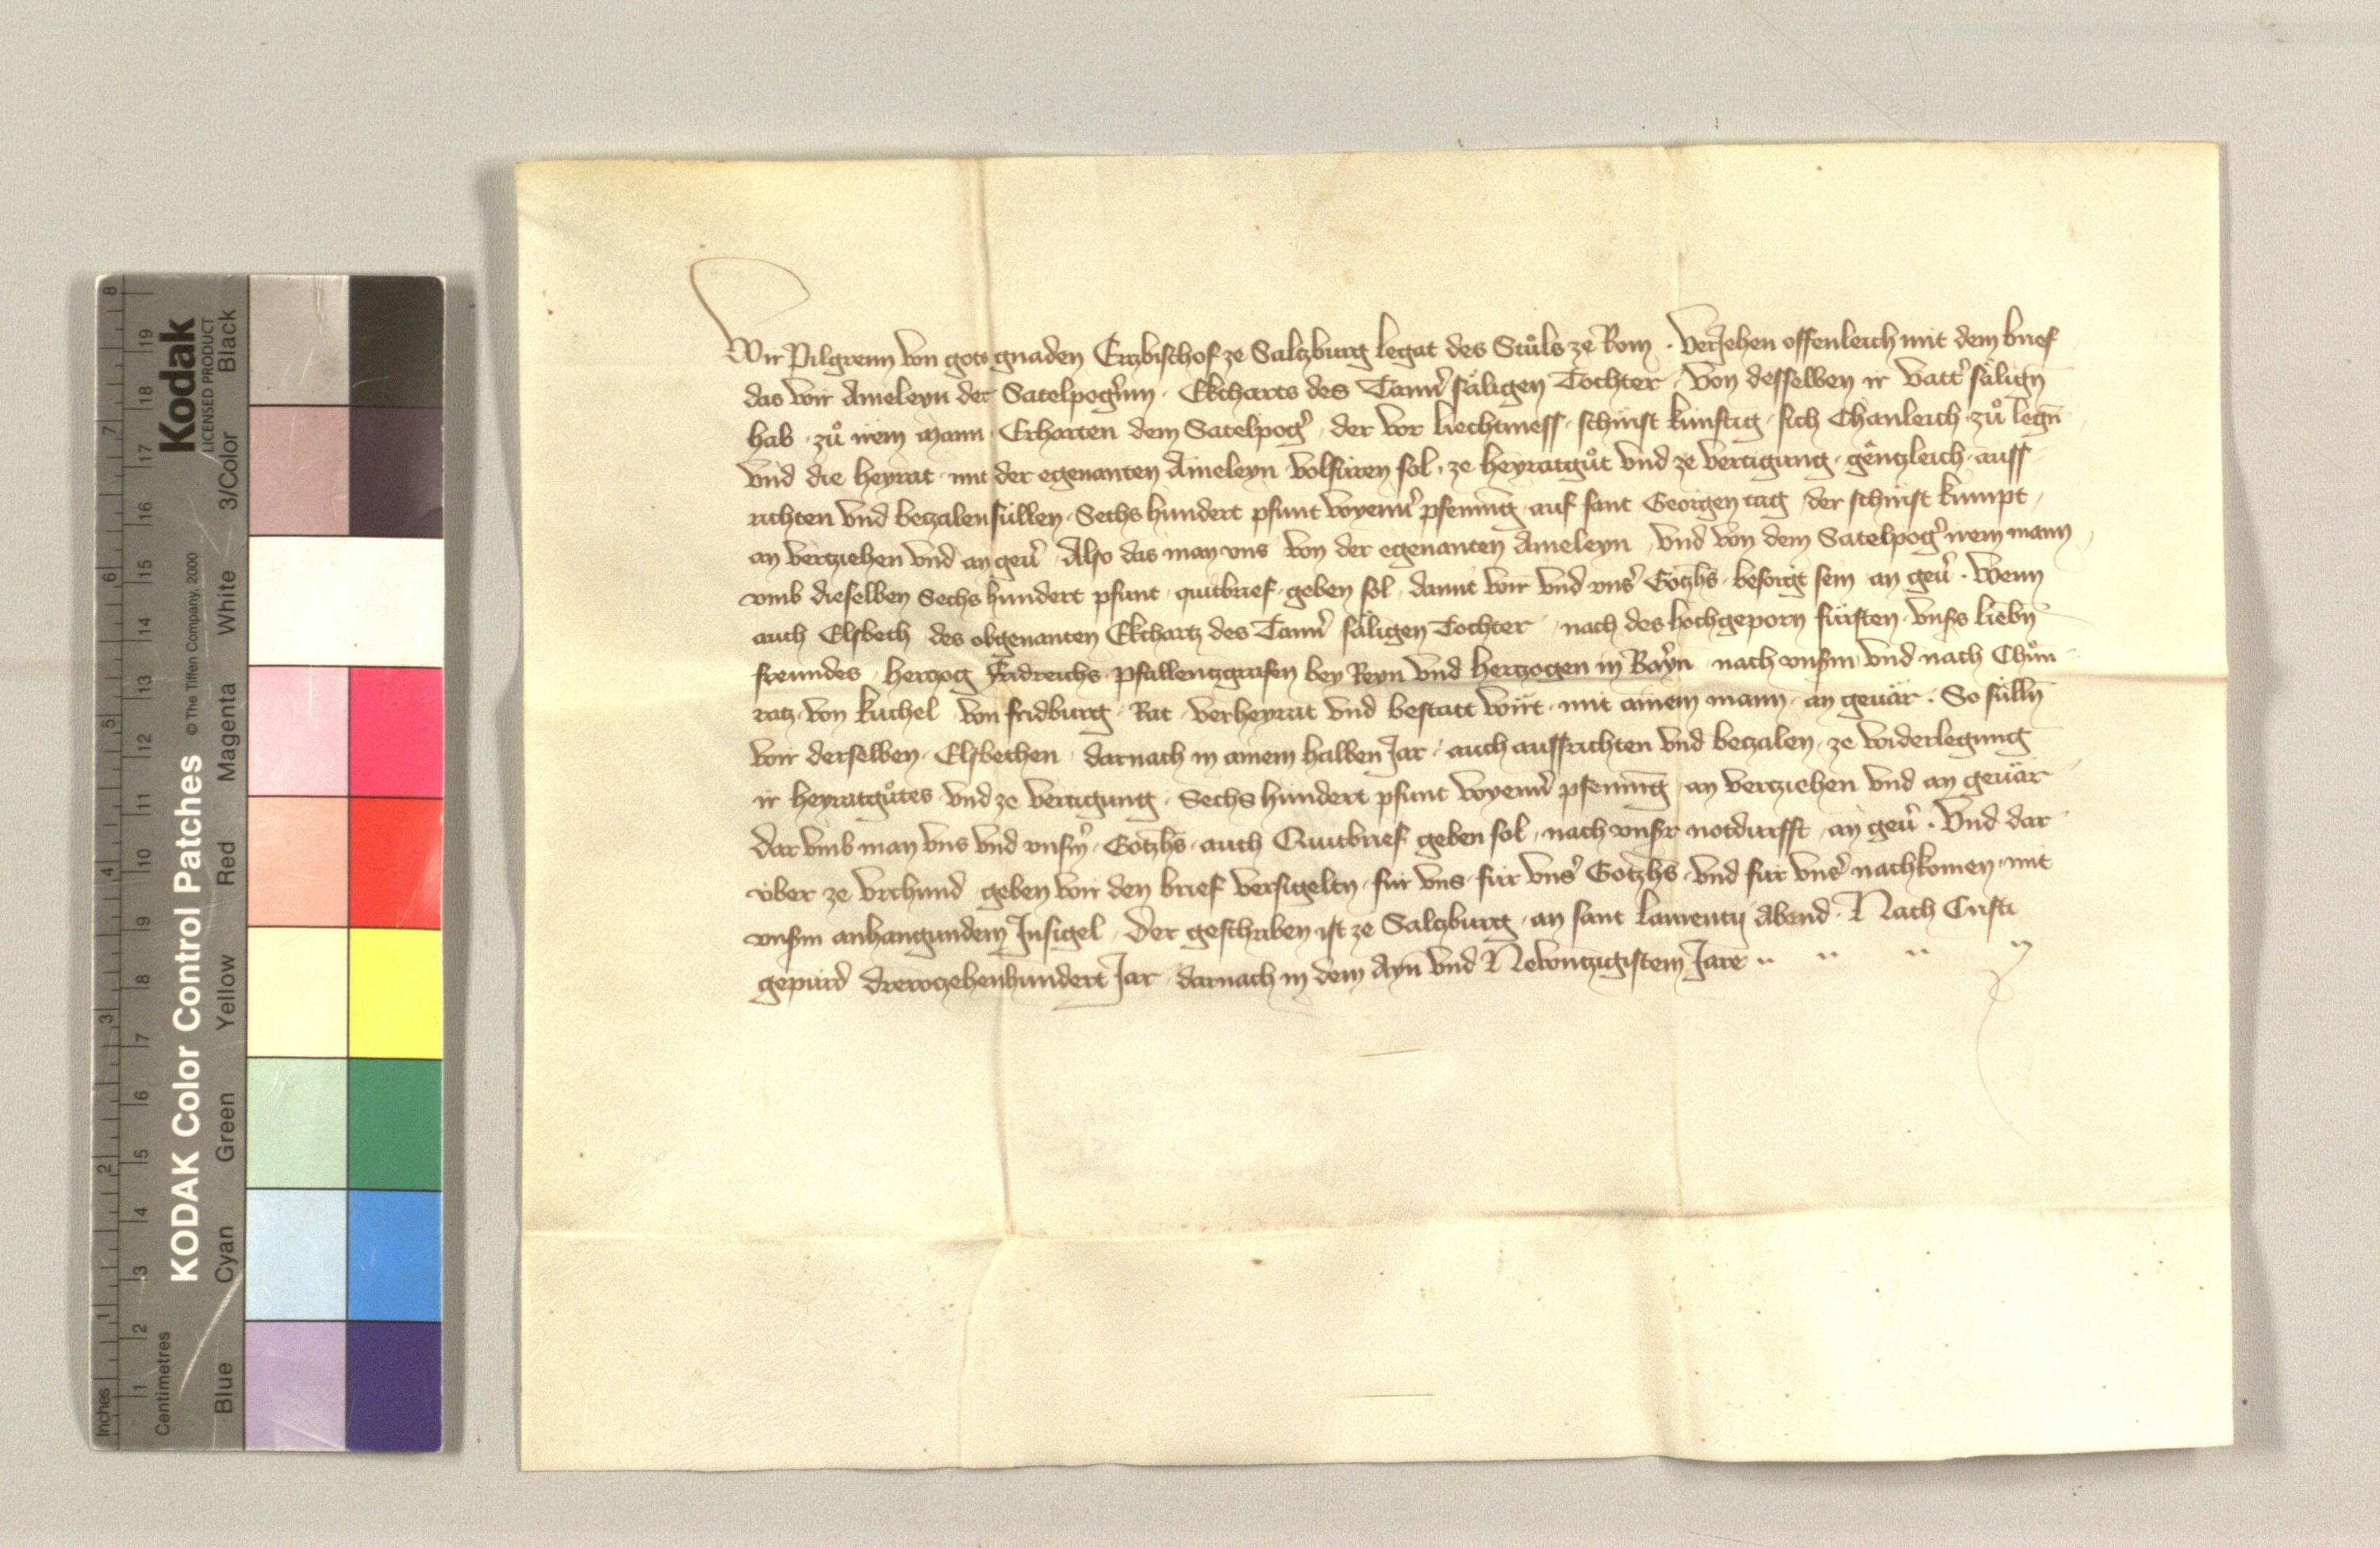 Wir Pilgreim von gots gnaden Ertzbischof ze Saltzburg legat des Stůls ze Rom · Veriehen offenleich mit dem brief
das wir Ameleyn der Satelpog̉inn · Ekcharts des Tann̉ såligen Tochter · von desselben ir vatt̉ sålign̄
hab · zů irem mann · Erharten dem Satelpog̉ · der vor liechtmess · schirist kunftig · sich Chanleich · zů legn̄
vnd die heyrat · mit der egenanten Ameleyn volfüren sol · ze heyratgůt vnd ze vertigung · gêntzleich · auss
richten vnd betzalen süllen · Sechs hundert pfunt wyenn̉ pfening · auf sant Georigen tag · der schirist kumpt ·
an vertziehen vnd an geu̓ · Also das man vns von der egenanten Ameleyn · vnd von dem Satelpog̉ irem mann
vmb dieselben Sechs hundert pfunt · quitbrief · geben sol · damit wir vnd vns̉ Gotzhs̄ · besorgt sein · an geu̓ · Wenn
auch Elsbeth des obgenanten Ekchartz des Tann̉ såligen Tochter · nach des hochgeporn fürsten · vnsers liebn̄
freundes · hertzog Fridreichs · pfallentzgrafen bey Reyn vnd hertzogen in Bayrn · nach vnserm vnd nach Chůn
ratz · von kuchel · von fridburg · Rat · verheyrat vnd bestatt wirt · mit ainem mann · an geuär · So sülln̄
wir derselben · Elsbethen · darnach in ainem halben Jar · auch aussrichten vnd betzalen · ze widerlegung
ir heyratgůtes · vnd ze vertigung · Sechs hundert pfunt wyenn̉ pfening · an vertziehen vnd an geuär
Dar vmb man vns vnd vnserm · Gotzhs̄ · auch Quitbrief geben sol · nach vnser notdurfft · an geu̓ · Vnd dar
über ze vrchund · geben wir den brief versigelten · für vns · für vns̉ Gotzhs̄ · vnd für vns̉ nachkomen · mit
vnserm anhangundem Insigel · Der geschriben ist ze Saltzburg · an sant Laurentii Abend · Nach Cristi
gepurd drewtzehenhundert Jar · darnach in dem Ayn vnd Newntzigistem Jare
KODAK Color Control Patches © The Tiffen Company, 2000
Kodak
LICENSED PRODUCT
Inches
1 2 3 4 5 6 7 8
Centimetres
1 2 3 4 5 6 7 8 9 10 11 12 13 14 15 16 17 18 19
Blue Cyan Green Yellow Red Magenta White 3/Color Black